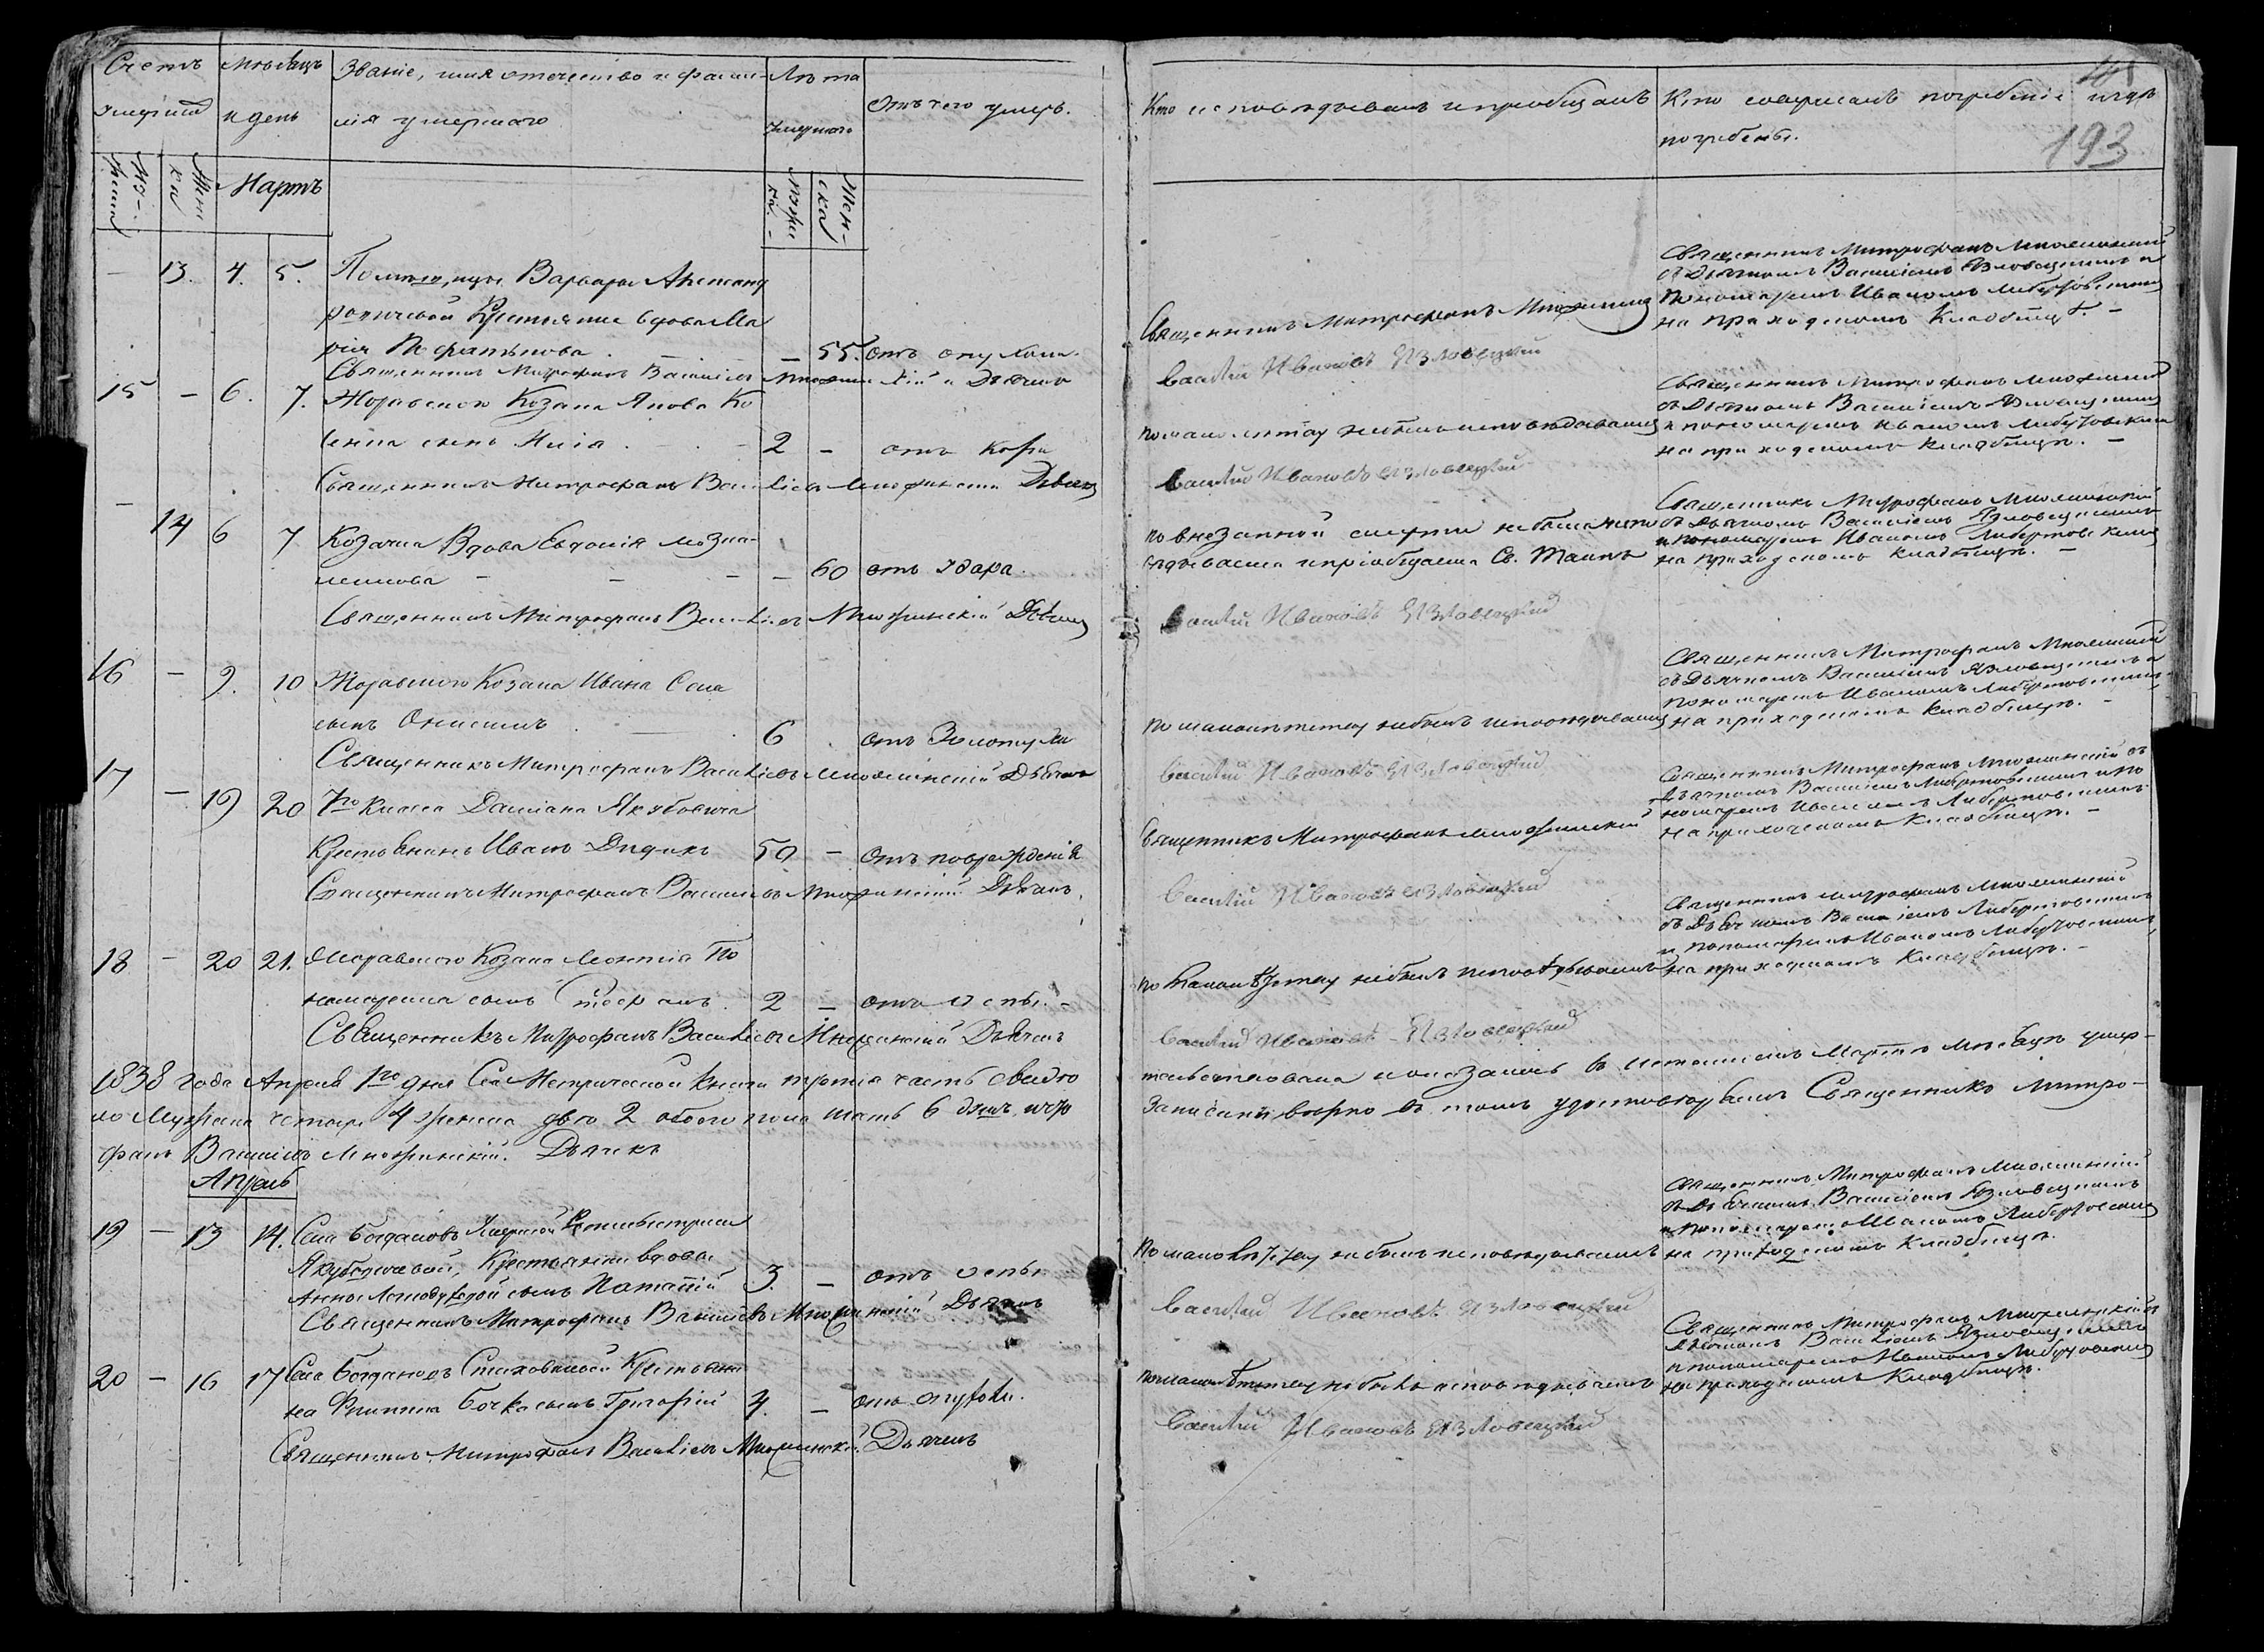 Счетъ умершихъ
Мѣсяцъ и день
Званіе, имя отечество и фами-
лія умершаго
Лѣта умершаго
Отъ чего умеръ.
Кто исповѣдывалъ и пріобщалъ
Кто совершалъ погребеніе и гдѣ
погребены.
193
Мартъ
13. 4. 5. Помѣщицы Варвары Александ
ровичевой Крестьянка вдова Ма
рія
55. отъ опухоли.
Священникъ Митрофанъ
Василій Ивановъ Язловецкій
Священникъ Митрофанъ
съ Дьячкомъ Василіемъ Язловецкимъ и
Пономаремъ Иваномъ
на приходскомъ Кладбищѣ. –
Священникъ Митрофанъ Василіевъ и Дьячекъ
15 – 6. 7. Козака Якова Ко
сенка сынъ Илія
2 – отъ кори
по малолѣтству небылъ исповѣдыванъ
Василій Ивановъ Язловецкій
Священникъ Митрофанъ
съ Дьячкомъ Василіемъ
и пономаремъ Иваномъ
на приходскомъ Кладбищѣ. –
Священникъ Митрофанъ Василіевъ Дьячекъ
– 14 6 7 Козачка Вдова Евдокія
– – – 60 отъ удара.
по внезапной смерти небыла испо
вѣдываема и пріобщаема Св. Таинъ
Василій Ивановъ Язловецкій
Священникъ Митрофанъ
съ Дьячкомъ Василіемъ Язловецкимъ
и Пономаремъ Иваномъ
на приходскомъ кладбищѣ. –
Священникъ Митрофанъ Василіевъ Дьячекъ
16 – 9. 10 Козака Ивана
сынъ Онисимъ
6 отъ Золотухи
по малолѣтству небылъ исповѣдыванъ
Василій Ивановъ Язловецкій
Священникъ Митрофанъ
съ Дьячкомъ Василіемъ Язловецкимъ и
пономаремъ Иваномъ
на приходскомъ кладбищѣ. –
Священникъ Митрофанъ Василіевъ Дьячекъ
17 – 19 20 7го Класса Даміана Якубовича
Крестьянинъ Иванъ Дидикъ 50 – Отъ поврежденія
Священникъ Митрофанъ
Василій Ивановъ Язловецкій
Священникъ Митрофанъ съ
Дьячкомъ Василіемъ и По
номаремъ
на приходскомъ Кладбищѣ. –
Священникъ Митрофанъ Василіевъ Дьячекъ.
18 – 20 21. Козака Леонтія По
номаренка сынъ Стефанъ. 2 – отъ оспы. –
по малолѣтству небылъ исповѣдыванъ
Василій Ивановъ Язловецкій
Священникъ Митрофанъ
съ Дьячкомъ Василіемъ
и пономаремъ Иваномъ
на приходскомъ Кладбищѣ. –
Священникъ Митрофанъ Василіевъ Дьячекъ
1838 года Апреля 1го дня Сея Метрической книги третья часть свидѣ
тельствована и оказалось въ истекшемъ Мартѣ мѣсяцѣ умер-
ло Мужеска четыре 4 женска два 2 обоего пола шесть 6 душъ что
записаны вѣрно въ томъ удостовѣряемъ Священникъ Митро-
фанъ Василіевъ Дьячекъ
Апрель
19 – 13 14. Села Богдановъ
Якубовичевой, Крестьянки вдовы
Анны сынъ Потапій 3. – отъ оспы
по малолѣтству небылъ исповѣдыванъ
Василій Ивановъ Язловецкій
Священникъ Митрофанъ
съ Дьячкомъ Василіемъ Язловецкимъ
и пономаремъ Иваномъ
на приходскомъ Кладбищѣ.
Священникъ Митрофанъ Василіевъ Дьячекъ
20 – 16 17 Села Богдановъ Крестьяни
на Филиппа Бочка сынъ Григорій 4. – отъ опухоли.
по малолѣтству небылъ исповѣдыванъ
Василій Ивановъ Язловецкій
Священникъ Митрофанъ съ
Дьячкомъ Василіемъ Язловецкимъ
и пономаремъ Иваномъ
на приходскомъ Кладбищѣ.
Священникъ Митрофанъ Василіевъ Дьячекъ